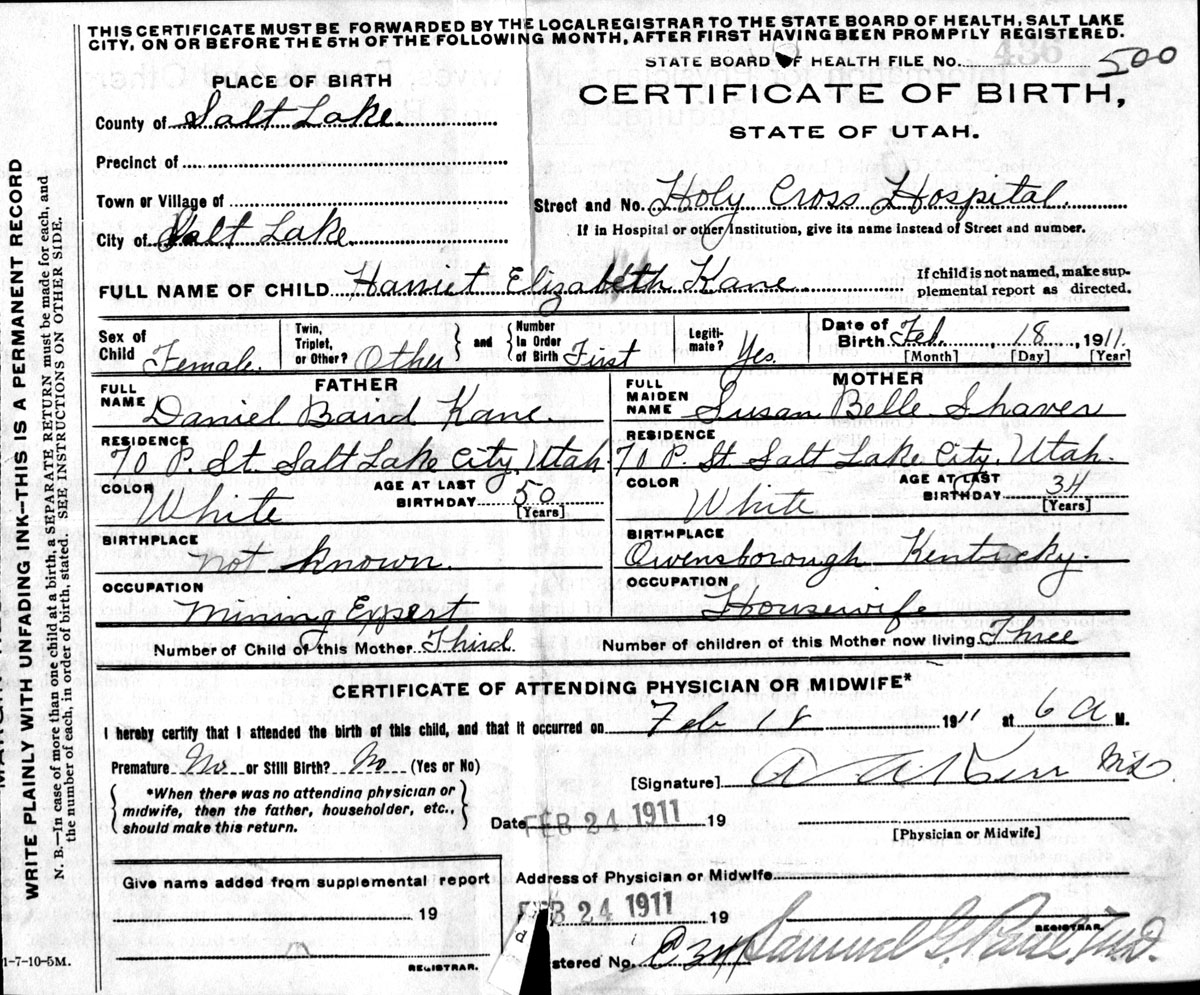 THIS CERTIFICATE MUST BE FORWARDED BY THE LOCAL REGISTRAR TO THE STATE BOARD OF HEALTH, SALT LAKE
CITY, ON OR BEFORE THE 5TH OF THE FOLLOWING MONTH, AFTER FIRST HAVING BEEN PROMPTLY REGISTERED.
STATE BOARD OF HEALTH FILE No. 436 500
PLACE OF BIRTH
CERTIFICATE OF BIRTH,
STATE OF UTAH.
County of Salt Lake.
Precinct of
Town or Village of
Street and No. Holy Cross Hospital.
City of Salt Lake
If in Hospital or other Institution, give its name instead of Street and number.
FULL NAME OF CHILD Harriet Elizabeth Kane
If child is not named, make sup-
plemental report as directed.
Sex of Child Female.
Twin, Triplet, or Other? Other
and
Number in Order of Birth First
Legiti-mate? Yes.
Date of Birth Feb. 18, 1911
[Month] [Day] [Year]
FATHER
MOTHER
FULL NAME Daniel Baird Kane
FULL MAIDEN NAME Susan Belle Shaver
RESIDENCE 70 P. St. Salt Lake City, Utah.
RESIDENCE 70 P. St Salt Lake City, Utah.
COLOR White AGE AT LAST BIRTHDAY 50 [Years]
COLOR White AGE AT LAST BIRTHDAY 34 [Years]
BIRTHPLACE not known.
BIRTHPLACE Owensborough Kentucky.
OCCUPATION Mining Expert
OCCUPATION Housewife
Number of Child of this Mother Third.
Number of children of this Mother now living Three
CERTIFICATE OF ATTENDING PHYSICIAN OR MIDWIFE*
I hereby certify that I attended the birth of this child, and that it occurred on Feb 18 1911 at 6 A M.
Premature No or Still Birth? No (Yes or No)
[Signature] A A Kerr MD.
*When there was no attending physician or
midwife, then the father, householder, etc.,
should make this return.
Date FEB 24 1911 19
[Physician or Midwife]
Give name added from supplemental report
19
REGISTRAR.
Address of Physician or Midwife
FEB 24 1911 19
REGISTRAR.
stered No. Samuel G. Paul, M.D.
1-7-10-5M.
WRITE PLAINLY WITH UNFADING INK—THIS IS A PERMANENT RECORD
N. B.—In case of more than one child at a birth, a SEPARATE RETURN must be made for each, and
the number of each, in order of birth, stated. SEE INSTRUCTIONS ON OTHER SIDE.